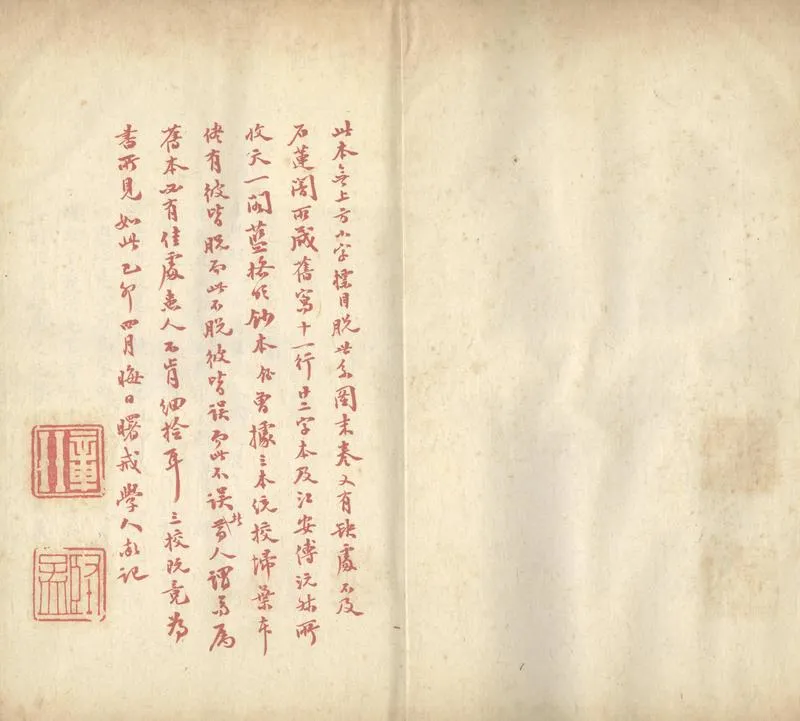 此本無上方小字標目脫世系圖末卷又有缺處不及
石蓮闇所藏舊寫十一行廿二字本及江安傅沅叔所
收天一閣藍格鈔本曾據三本統校掃葉本
儘有彼皆脫而此不脫彼皆誤而此不誤此昔人謂
舊本必有佳處患人不肯細撿耳三校既竟為
書所見如此乙卯四月晦日曙戒學人記